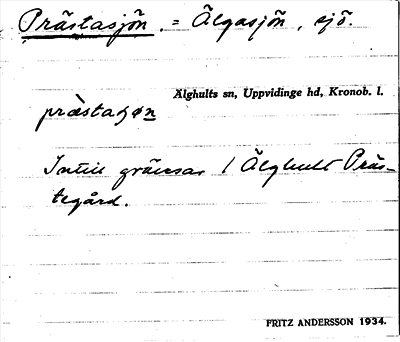 Prästasjön, = Älgasjön, sjö.
Älghults sn, Uppvidinge hd, Kronob. l.
Intill gränsar / Älghult Präs-
tegård.
FRITZ ANDERSSON 1934.